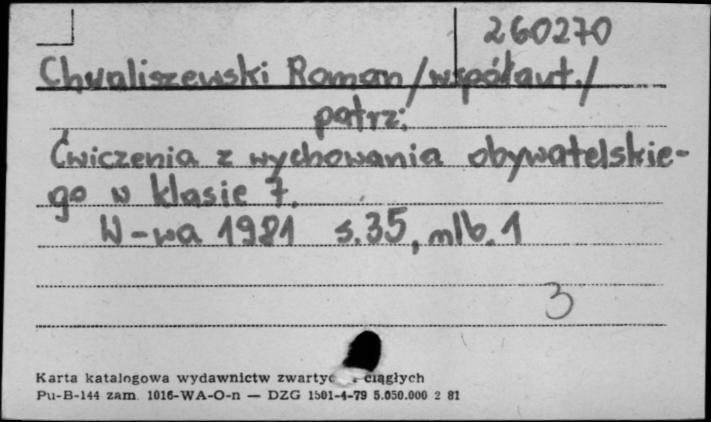 260270
Chwaliszewski Roman /współaut./
patrz:
Ćwiczenia z wychowania obywatelskie-
go w klasie 7.
W-wa 1981 s.35, nlb. 1
3
Karta katalogowa wydawnictw zwartyc ciągłych
Pu-B-144 zam. 1016-WA-O-n — DZG 1501-4-79 5.050.000 2 81